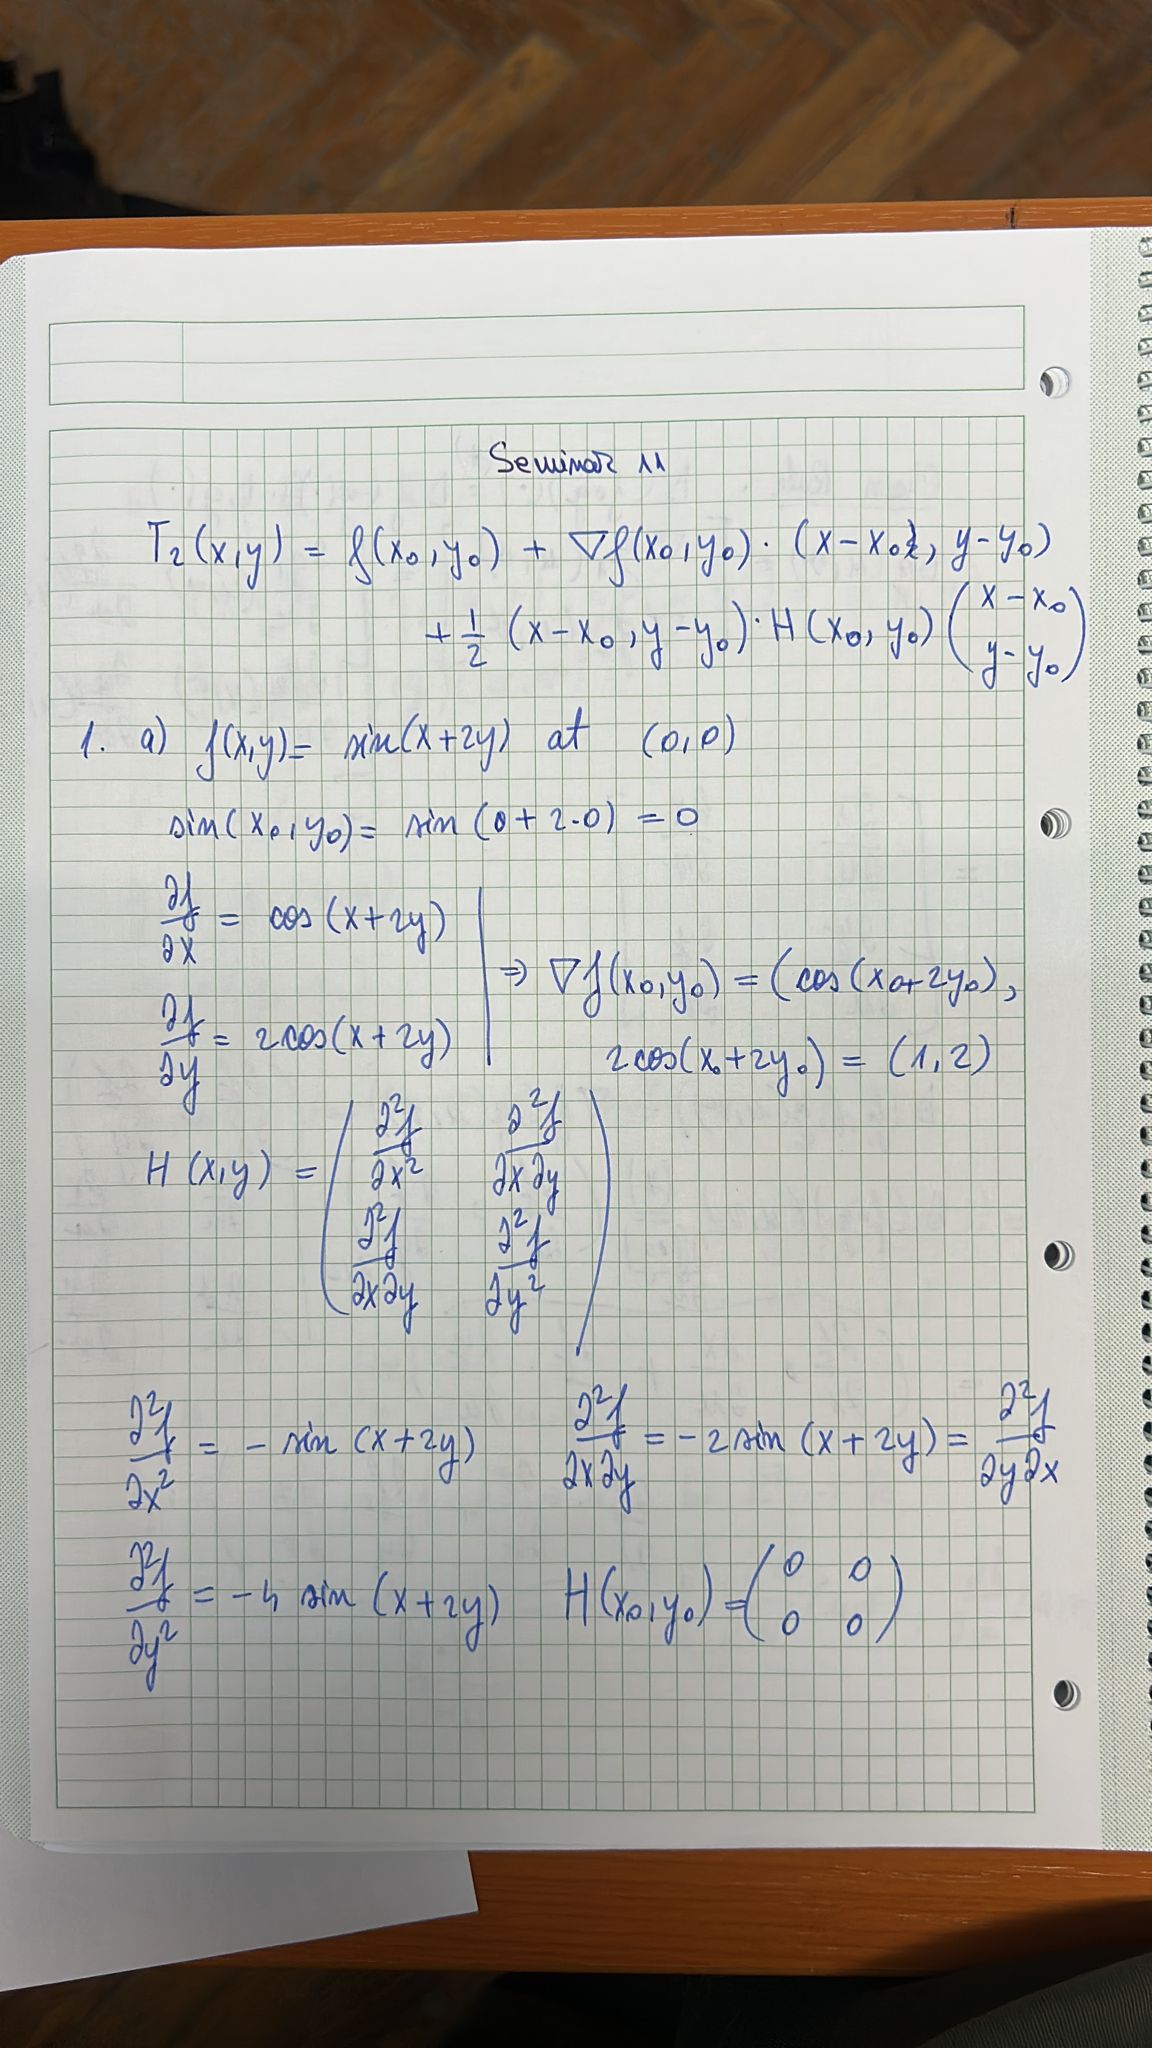 Seminar 11
T₂(x,y) = f(x₀,y₀) + ∇f(x₀,y₀)·(x-x₀, y-y₀)
+ 1/2 (x-x₀, y-y₀)·H(x₀,y₀) (x-x₀ y-y₀)
1. a) f(x,y) = sin(x+2y) at (0,0)
sin(x₀,y₀) = sin(0+2·0) = 0
∂f/∂x = cos(x+2y)
∂f/∂y = 2cos(x+2y)
⇒ ∇f(x₀,y₀) = (cos(x₀+2y₀),
2cos(x₀+2y₀) = (1,2)
H(x,y) = (∂²f/∂x² ∂²f/∂x∂y
∂²f/∂x∂y ∂²f/∂y²)
∂²f/∂x² = -sin(x+2y) ∂²f/∂x∂y = -2sin(x+2y) = ∂²f/∂y∂x
∂²f/∂y² = -4 sin(x+2y) H(x₀,y₀) = (0 0
0 0)